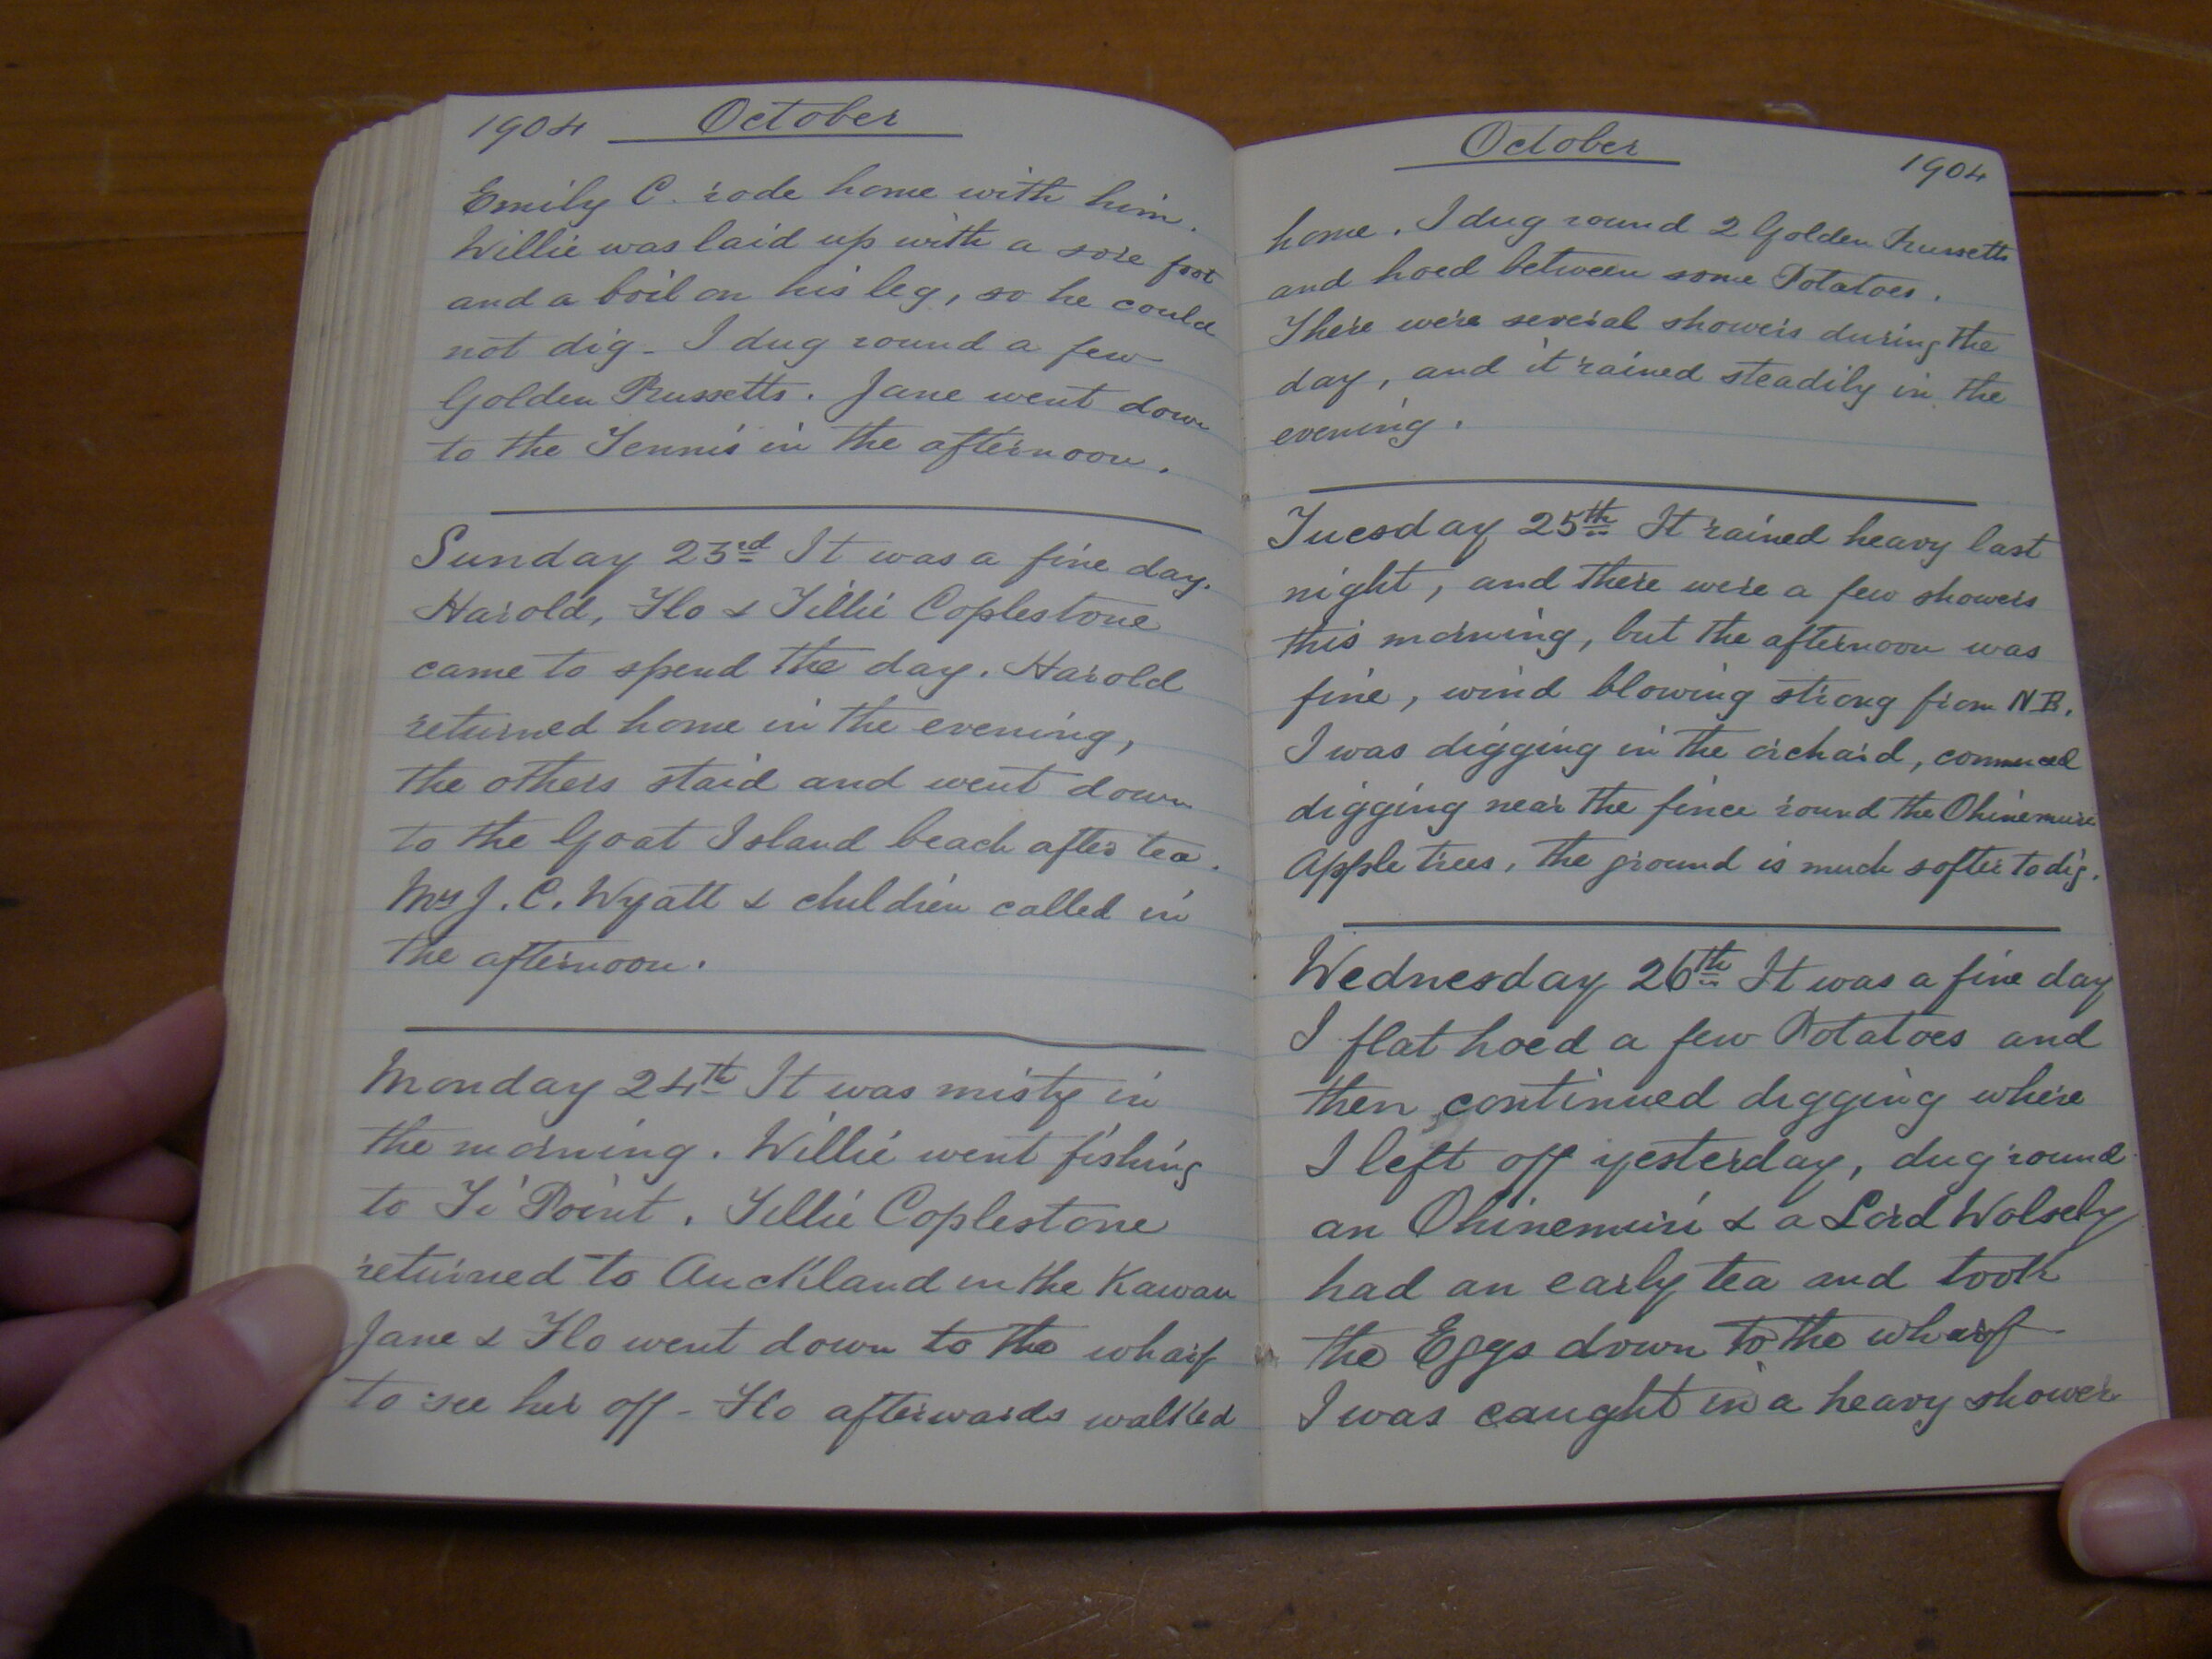 1904 October
Emily C. rode home with him.
Willie was laid up with a sore foot
and a boil on his leg, so he could
not dig - I dug round a few
Golden Russetts. Jane went down
to the Tennis in the afternoon.
Sunday 23rd It was a fine day.
Harold, Flo & Tillie Coplestone
came to spend the day. Harold
returned home in the evening,
the others staid and went down
to the Goat Island beach after tea.
Mrs J. C. Wyatt & children called in
the afternoon.
Monday 24th It was misty in
the morning. Willie went fishing
to Ti Point. Tillie Coplestone
returned to Auckland in the Kawau
Jane & Flo went down to the wharf
to see her off - Flo afterwards walked
October 1904
home. I dug round 2 Golden Russetts
and hoed between some Potatoes.
There were several showers during the
day, and it rained steadily in the
evening.
Tuesday 25th It rained heavy last
night, and there were a few showers
this morning, but the afternoon was
fine, wind blowing strong from N E.
I was digging in the orchard, commenced
digging near the fince round the Ohinemuri
Apple trees, the ground is much softer to dig.
Wednesday 26th It was a fine day
I flat hoed a few Potatoes and
then continued digging where
I left off yesterday, dug round
an Ohinemuri & a Lord Wolsely
had an early tea and took
the Eggs down to the wharf
I was caught in a heavy shower